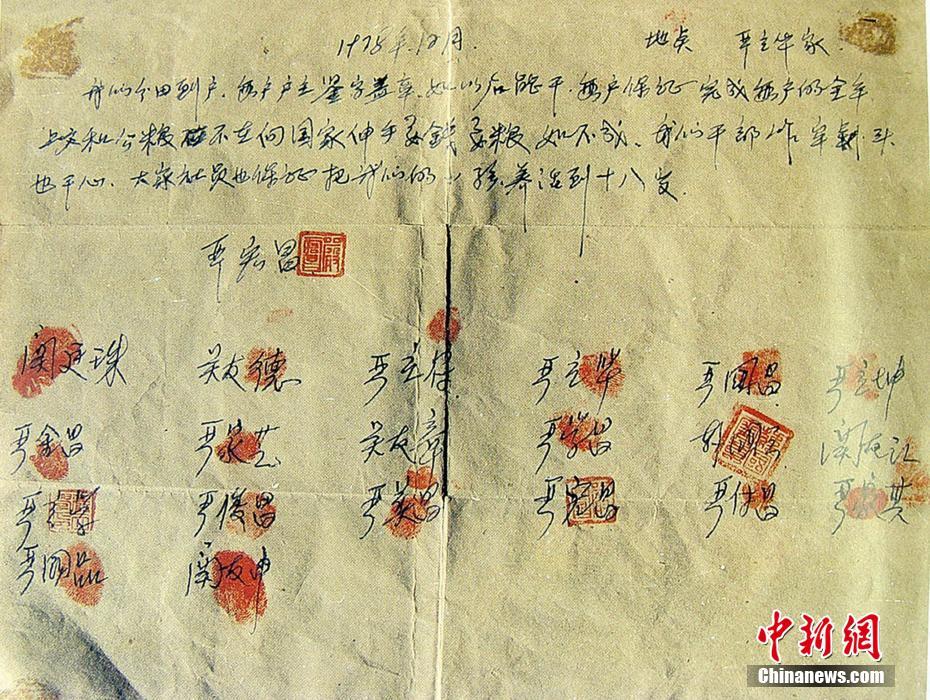 1978年12月. 地点 严立华家.
我们分田到户,每户户主签字盖章,如以后能干,每户保证完成每户的全年
上交和公粮 不在向国家伸手要钱要粮 如不成、我们干部作牢刹头
也干心、大家社员也保证把我们的小孩养活到十八岁.
严宏昌
関廷珠 关友德 严立符 严立华 严国昌 严立坤
严金昌 严家芝 关友章 严学昌 韩国云 関友江
严立学 严俊昌 严美昌 严宏昌 严付昌 严家其
严国品 関友申
中新網
Chinanews.com